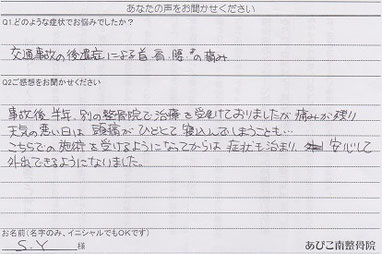 あなたの声をお聞かせください
Q1.どのような症状でお悩みでしたか?
交通事故の後遺症による首、肩、腰の痛み
Q2ご感想をお聞かせください
事故後半年、別の整骨院で治療を受けておりましたが痛みが残り
天気の悪い日は頭痛がひどくて寝込んでしまうことも…
こちらでの施術を受けるようになってからは症状も治まり、安心して
外出できるようになりました。
お名前(名字のみ、イニシャルでもOKです)
S.Y 様
あびこ南整骨院